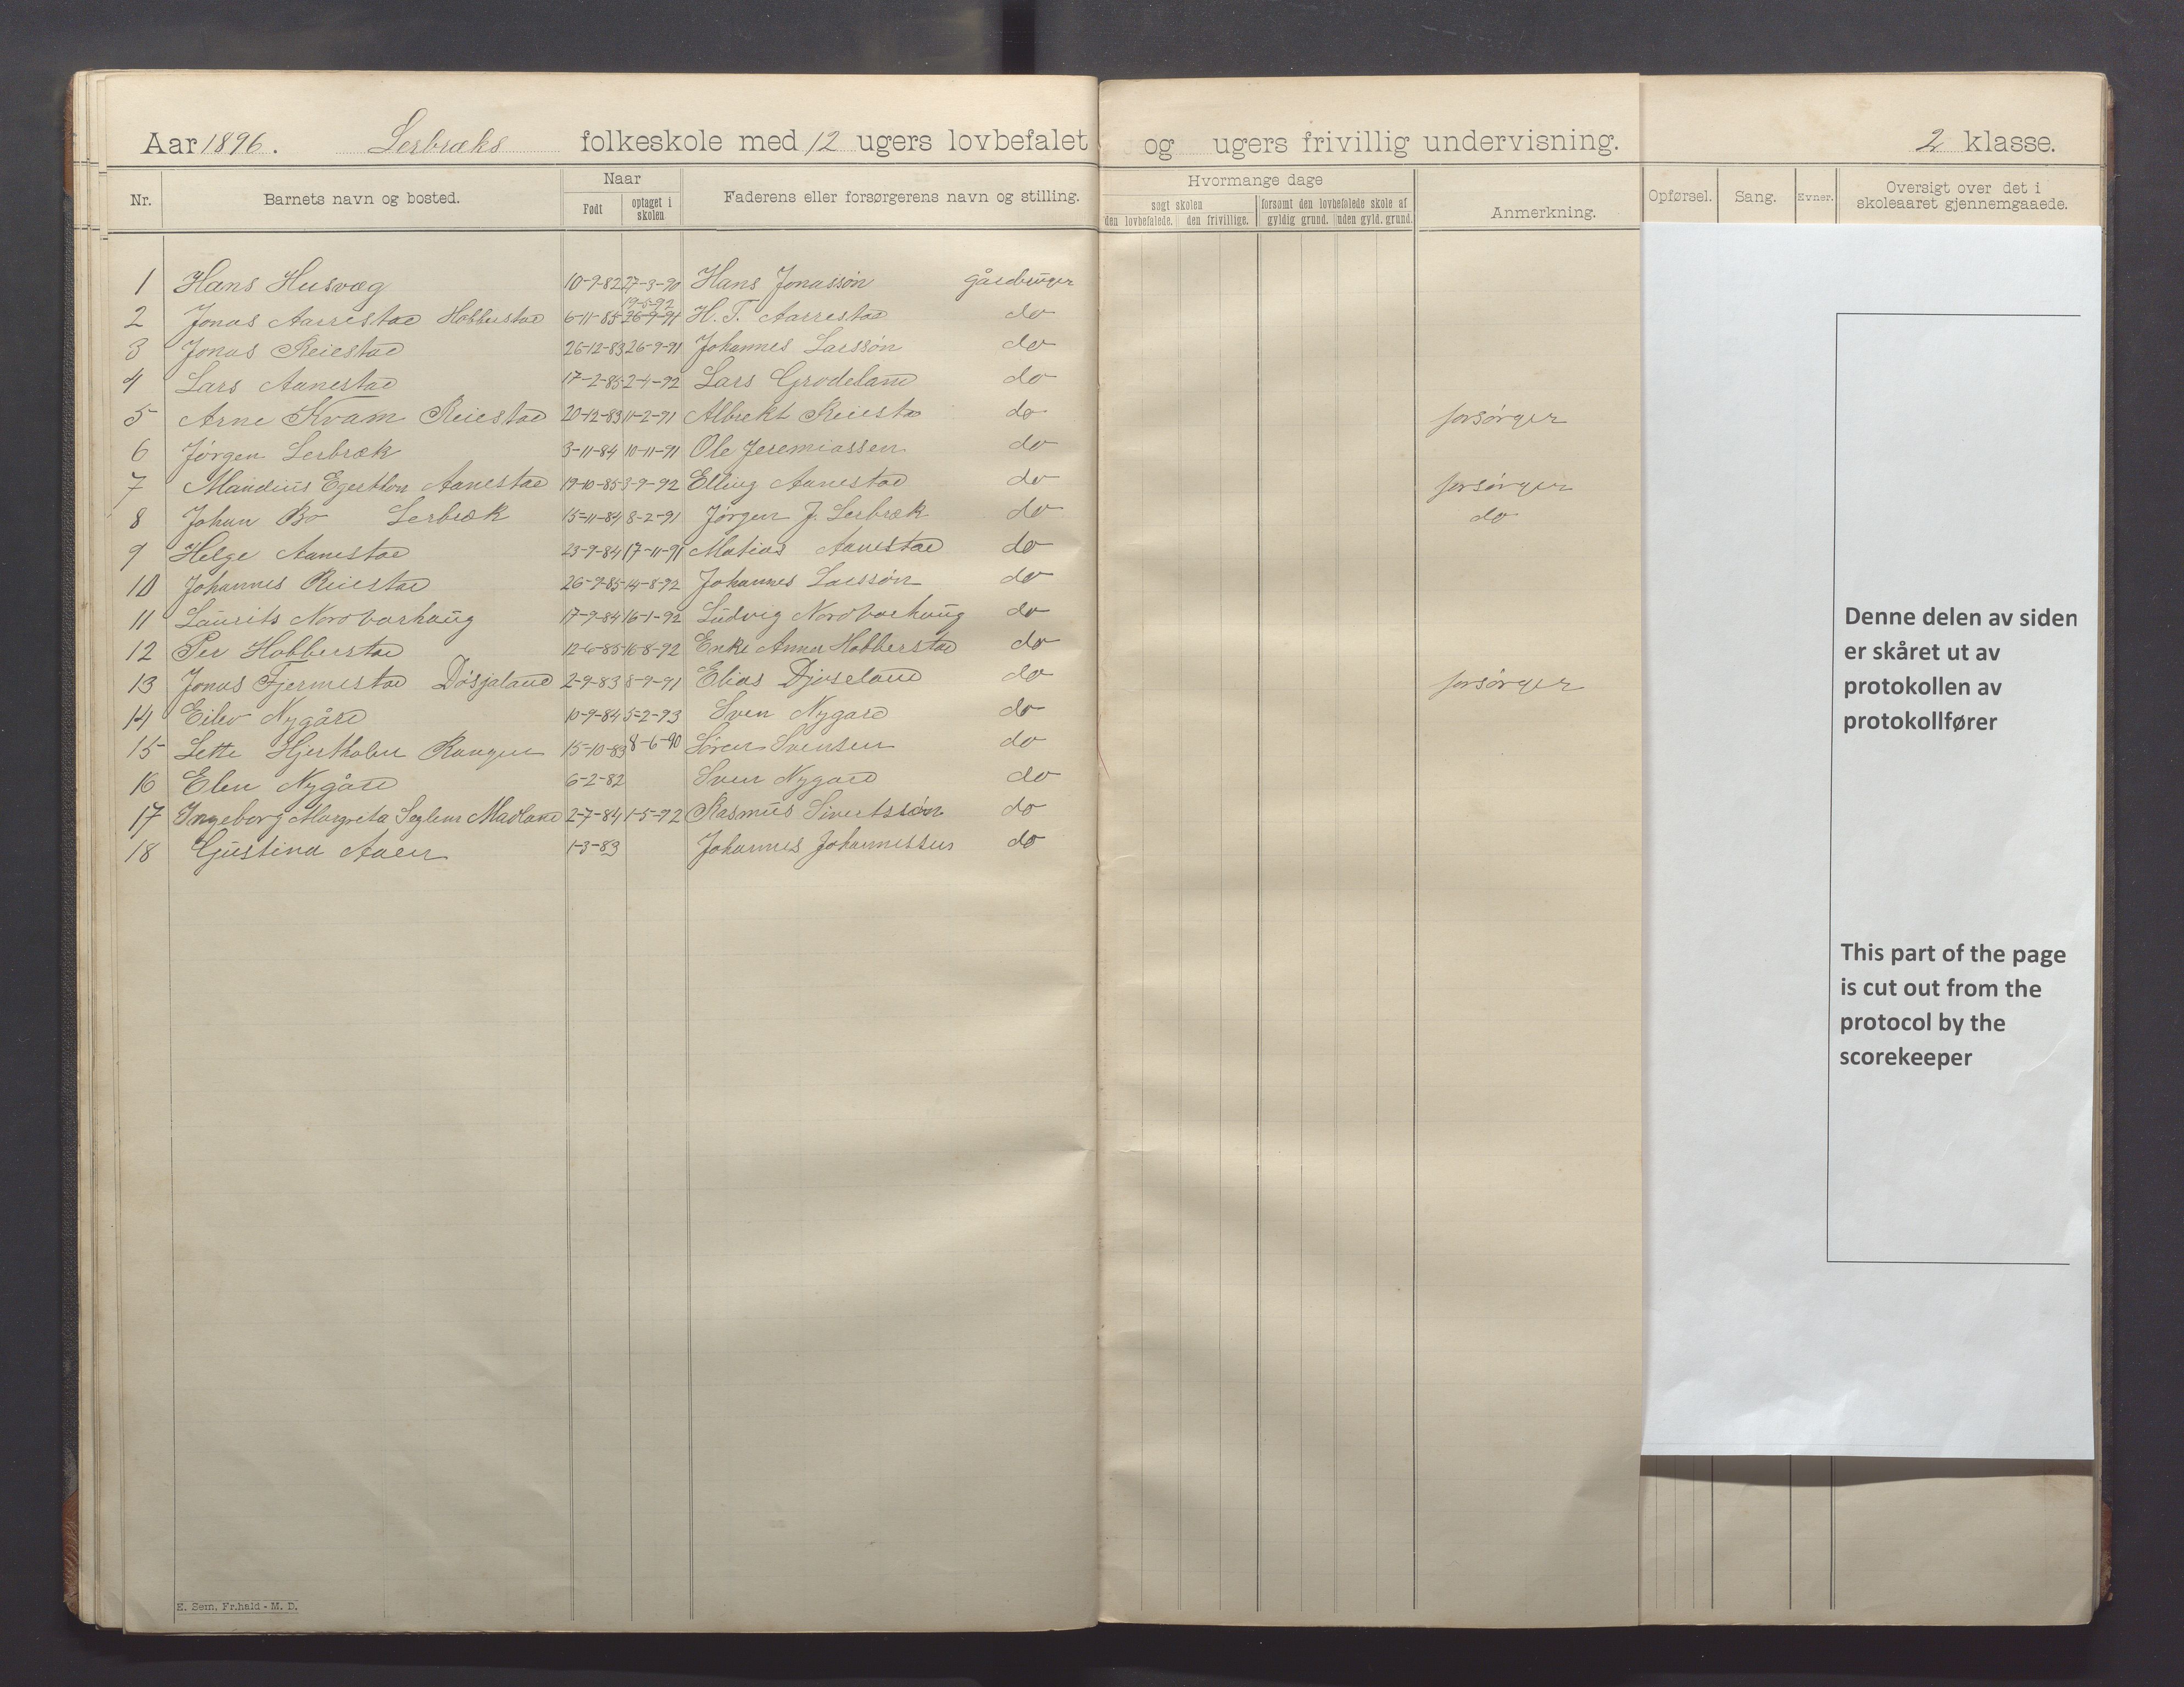 Aar 1896. Serbræks folkeskole med 12 ugers lovbefalet og ugers frivillig undervisning. 2 klasse.
Nr. Barnets navn og bosted. Naar Født optaget i skolen Faderens eller forsørgerens navn og stilling. Hvormange dage søgt skolen den lovbefalede. den frivillige. forsømt den lovbefalede skole af gyldig grund. uden gyld. grund. Anmerkning. Opførsel. Sang. Evner. Oversigt over det i skoleaaret gjennemgaaede.
1 Hans Husvæg 10-9-82 27-3-90 Hans Jonassøn gårdbruger
19-5-92
2 Jonas Aarrestad Hobberstad 6-11-85 26-9-91 H. T. Aarrestad do
3 Jonas Reiestad 26-12-83 26-9-91 Johannes Larssøn do
4 Lars Aanestad 17-2-85 2-4-92 Lars Grødeland do
5 Arne Kvam Reiestad 20-12-83 11-2-91 Albrekt Reiesta do forsørger
6 Jørgen Serbræk 3-11-84 10-11-91 Ole Jeremiassen do
7 Maudius Aanestad 19-10-85 3-9-92 Elling Aanestad do forsørger
8 Johan Bø Serbræk 15-11-84 8-2-91 Jørgen J. Serbræk do do
9 Helge Aanestad 23-9-84 17-11-91 Matias Aanestad do
10 Johannes Reiestad 26-9-85 14-8-92 Johannes Larssøn do
11 Laurits Nordvarhaug 17-9-84 16-1-92 Ludvig Nordvarhaug do
12 Per Hobberstad 12-6-85 16-8-92 Enke Anna Hobberstad do
13 Jonas Fjermestad Døsjaland 2-9-83 8-9-91 Elias Djøseland do forsørger
14 Eilev Nygård 10-9-84 5-2-93 Sven Nygard do
15 Sette Hjertholm Rangen 15-10-83 8-6-90 Søren Svensen do
16 Elen Nygård 6-2-82 Sven Nygard do
17 Ingeborg Margreta Seglem Madland 2-7-84 1-5-92 Rasmus Sivertssøn do
18 Gustina Aaen 1-3-83 Johannes Johannessen do
Denne delen av siden
er skåret ut av
protokollen av
protokollfører
This part of the page
is cut out from the
protocol by the
scorekeeper
E. Sem, Fr.hald - M. D.